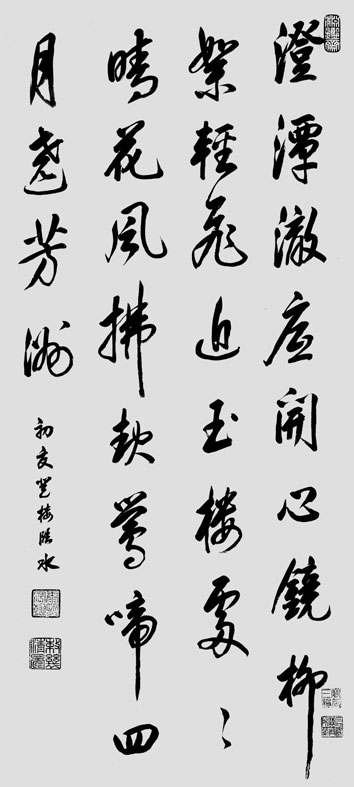 澄潭澈底開心鏡柳
絮輕飛近玉樓處〻
晴花風拂軟鶯啼四
月遶芳洲
初夏登樓臨水